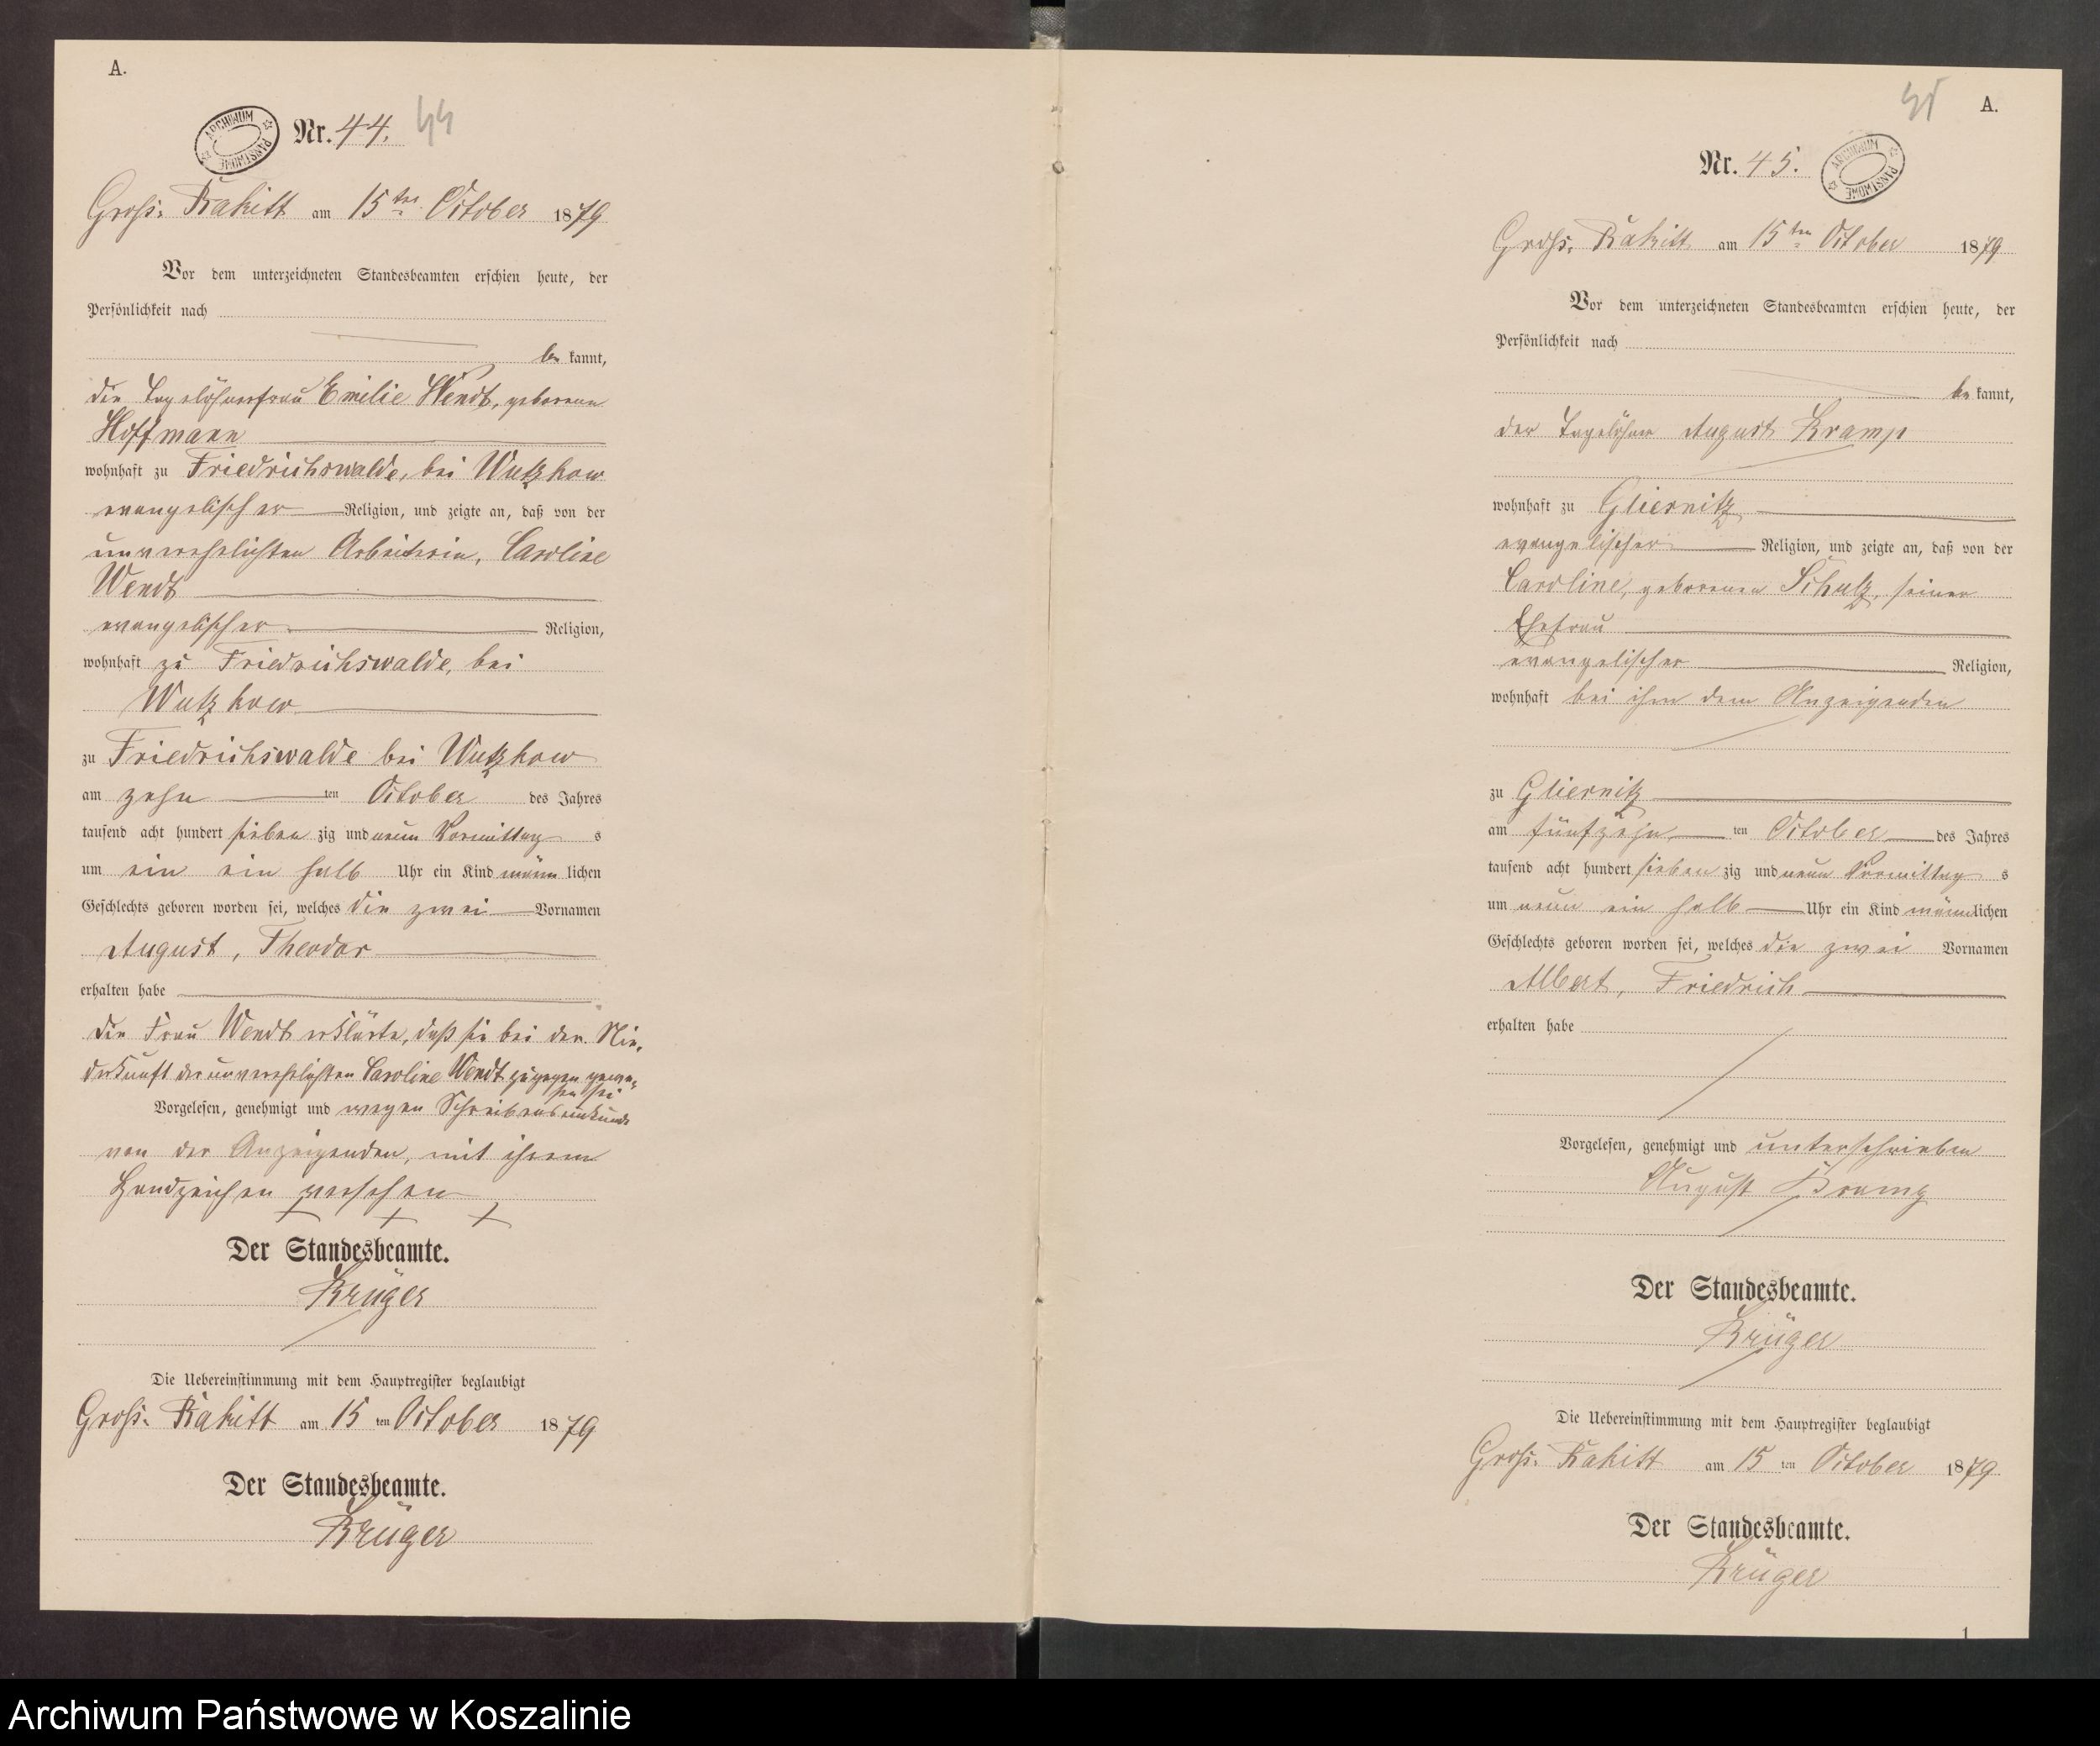 A.
ARCHIWUM PAŃSTWOWE
Nr. 44. 44
Gross. Rakitt am 15ten October 1879
Vor dem unterzeichneten Standesbeamten erschien heute, der
Persönlichkeit nach
be kannt,
die Tagelöhnerfrau Emilie Wendt, geborene
Hoffmann
wohnhaft zu Friedrichswalde, bei Wutzkow
evangelischer Religion, und zeigte an, daß von der
unverehelichten Arbeiterin, Caroline
Wendt
evangelischer Religion,
wohnhaft zu Friedrichswalde, bei
Wutzkow
zu Friedrichswalde bei Wutzkow
am zehn ten October des Jahres
tausend acht hundert sieben zig und neun Vormittag s
um ein ein halb Uhr ein Kind männ lichen
Geschlechts geboren worden sei, welches die zwei Vornamen
August, Theodor
erhalten habe
Die Frau Wendt erklärte, daß sie bei der Nie-
derkunft der unverehelichten Caroline Wendt zugegen gewe-
sen sei
Vorgelesen, genehmigt und wegen Schreibensunkunde
von der Anzeigenden, mit ihrem
Handzeichen versehen
+ + +
Der Standesbeamte.
Krüger
Die Uebereinstimmung mit dem Hauptregister beglaubigt
Gross. Rakitt am 15 ten October 1879
Der Standesbeamte.
Krüger
45 A.
Nr. 45.
ARCHIWUM PAŃSTWOWE
Gross. Rakitt am 15ten October 1879
Vor dem unterzeichneten Standesbeamten erschien heute, der
Persönlichkeit nach
be kannt,
der Tagelöhner August Kramp
wohnhaft zu Gliesnitz
evangelischer Religion, und zeigte an, daß von der
Caroline, geborenen Schulz, seiner
Ehefrau
evangelischer Religion,
wohnhaft bei ihm dem Anzeigenden
zu Gliesnitz
am fünfzehn ten October des Jahres
tausend acht hundert sieben zig und neun Vormittag s
um neun ein halb Uhr ein Kind männlichen
Geschlechts geboren worden sei, welches die zwei Vornamen
Albert, Friedrich
erhalten habe
Vorgelesen, genehmigt und unterschrieben
August Kramp
Der Standesbeamte.
Krüger
Die Uebereinstimmung mit dem Hauptregister beglaubigt
Gross. Rakitt am 15 ten October 1879
Der Standesbeamte.
Krüger
1
Archiwum Państwowe w Koszalinie